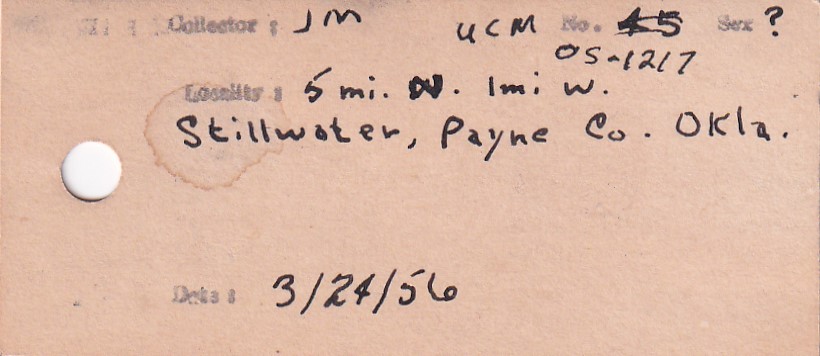 Collector : JM UCM No. 45 Sex ?
OS-1217
Locality : 5 mi. N. 1mi W.
Stillwater, Payne Co. Okla.
Date : 3/24/56